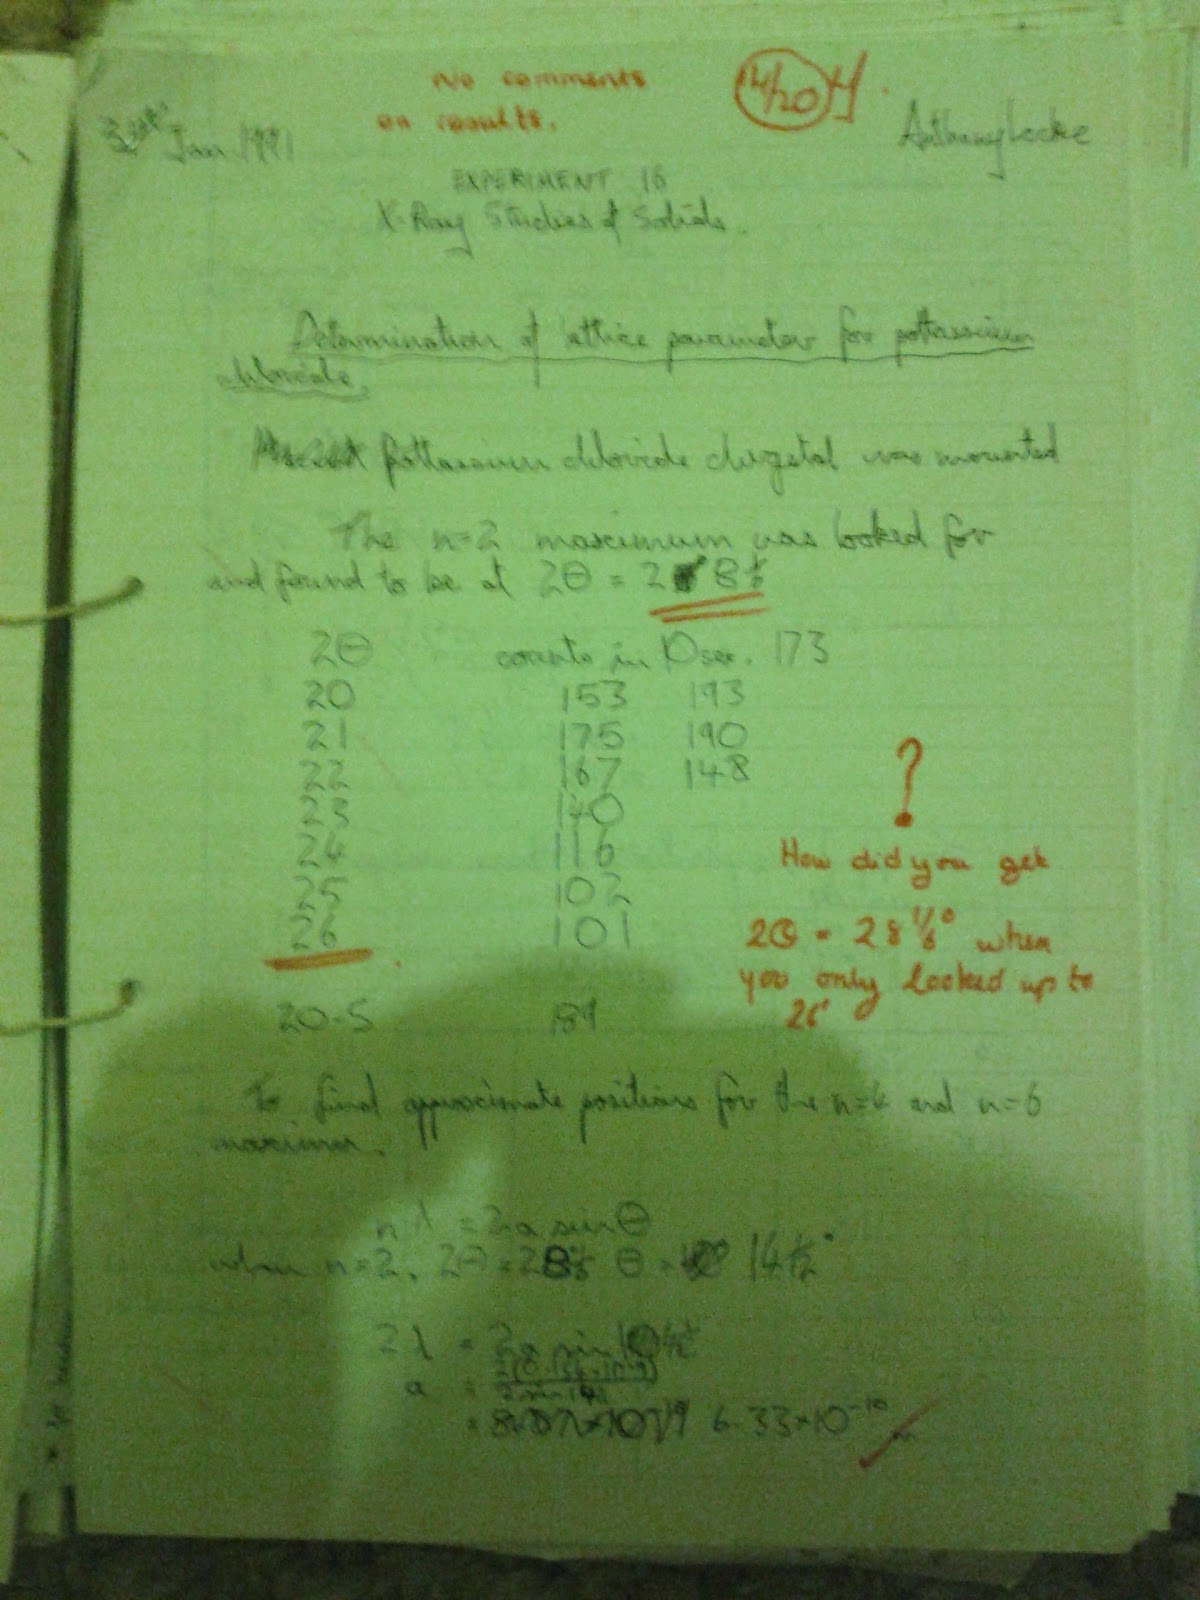 No comments
on results.
14/20
Jan 1991
Anthony Locke
EXPERIMENT 16
X-Ray Studies of Solids.
Determination of lattice parameter for pottassium
chloride.
Pottassium chloride chrystal was mounted
The n=2 maximum was looked for
and found to be at 2θ = 28
2θ counts in 10 sec. 173
20 153 193
21 175 190
22 167 148
23 140
24 116
25 102
26 101
?
How did you get
2θ = 28 when
you only looked up to
26°
20.5 189
To find approximate positions for the n=4 and n=6
maxima.
nλ = 2a sinθ
when n=2, 2θ = 28 θ = 14½°
2λ = 2a sin
a =
= 6.33×10⁻¹⁰ m